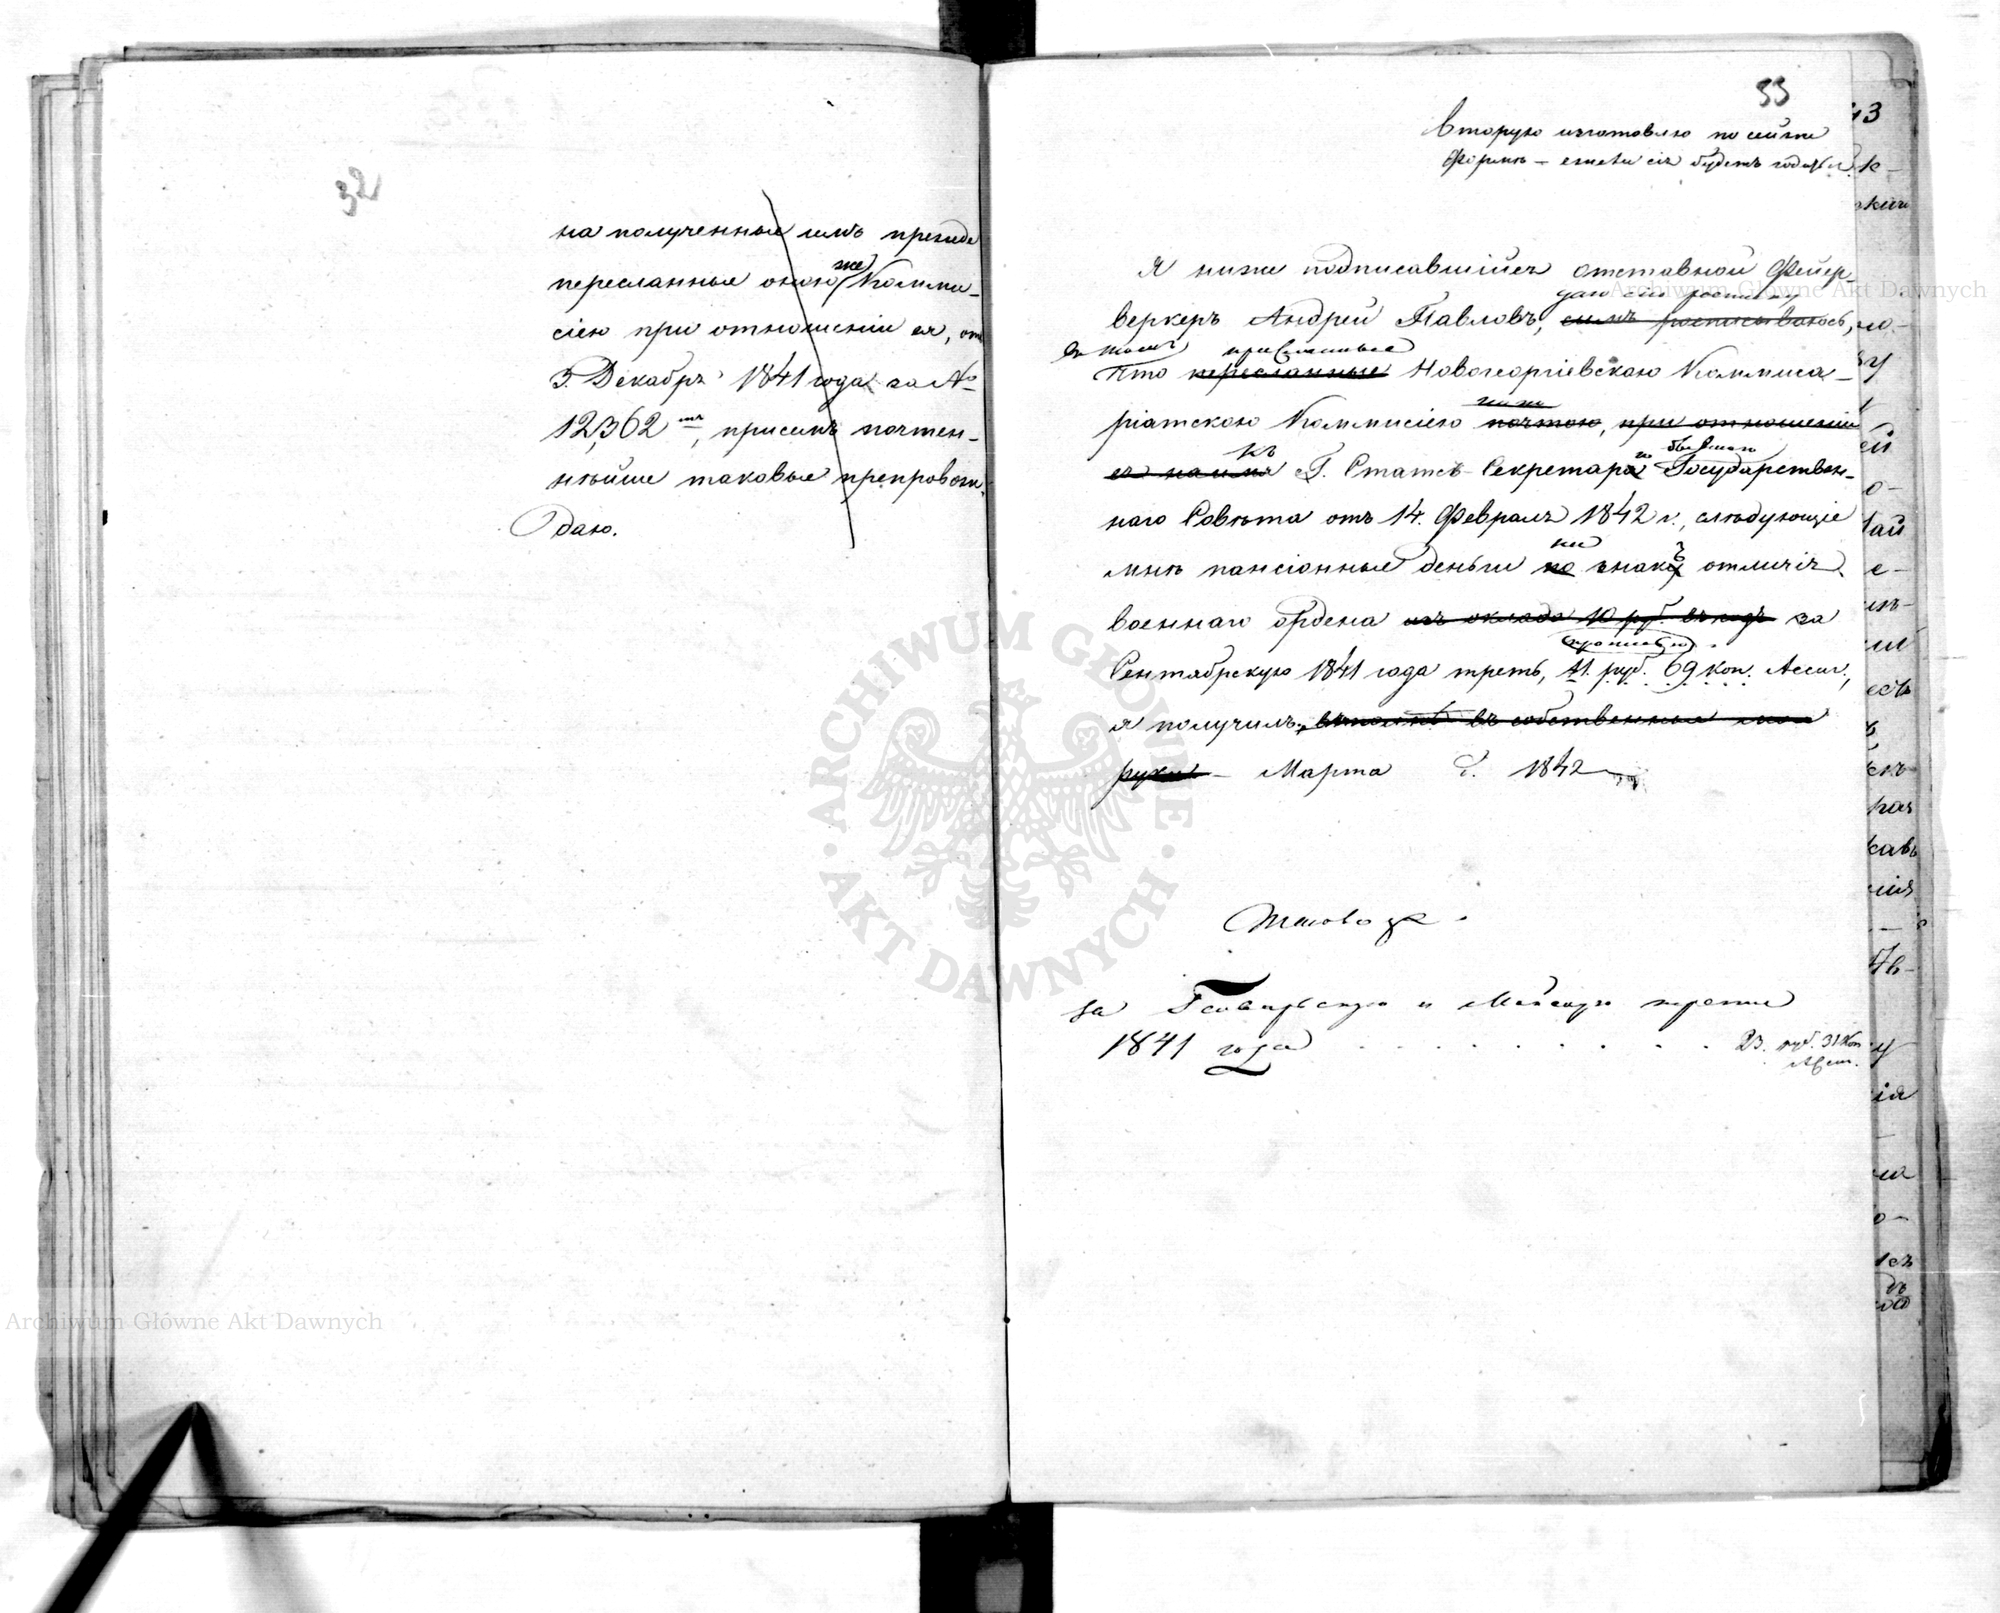 32
на полученные имъ прежде
пересланные оною же Комми-
сіею при отношеніи ея, отъ
3. Декабря 1841 года за №
12,362 мъ, присемъ почтен-
нѣйше таковые препровож-
даю.
33
Вторую изготовлю по сей же
формѣ — ежели сія будетъ годна
Я ниже подписавшійся отставной Фейер-
даю сію росписку
веркеръ Андрей Павловъ, симъ росписываюсь,
въ томъ присланные
Что пересланные Новогеоргіевскою Коммиса-
ріатскою Коммисіею почтою, при отношеніи
къ бывшему
ея на имя Г. Статсъ Секретаря Государствен-
наго Совѣта отъ 14. Февраля 1842 г., слѣдующіе
мнѣ пансіонные деньги по знаку отличія
военнаго ордена изъ оклада 10 руб. въ годъ за
Сентябрскую 1841 года треть, 11. руб. 69 коп. Ассиг.,
я получилъ, вполнѣ въ собственныя мои
руки — Марта 1842
Таковую
за Генварьскую и Майскую трети
1841 года . . . . . . . . . 23. руб. 31 Коп
Ассиг.
Archiwum Główne Akt Dawnych
Archiwum Główne Akt Dawnych
ARCHIWUM GŁÓWNE AKT DAWNYCH